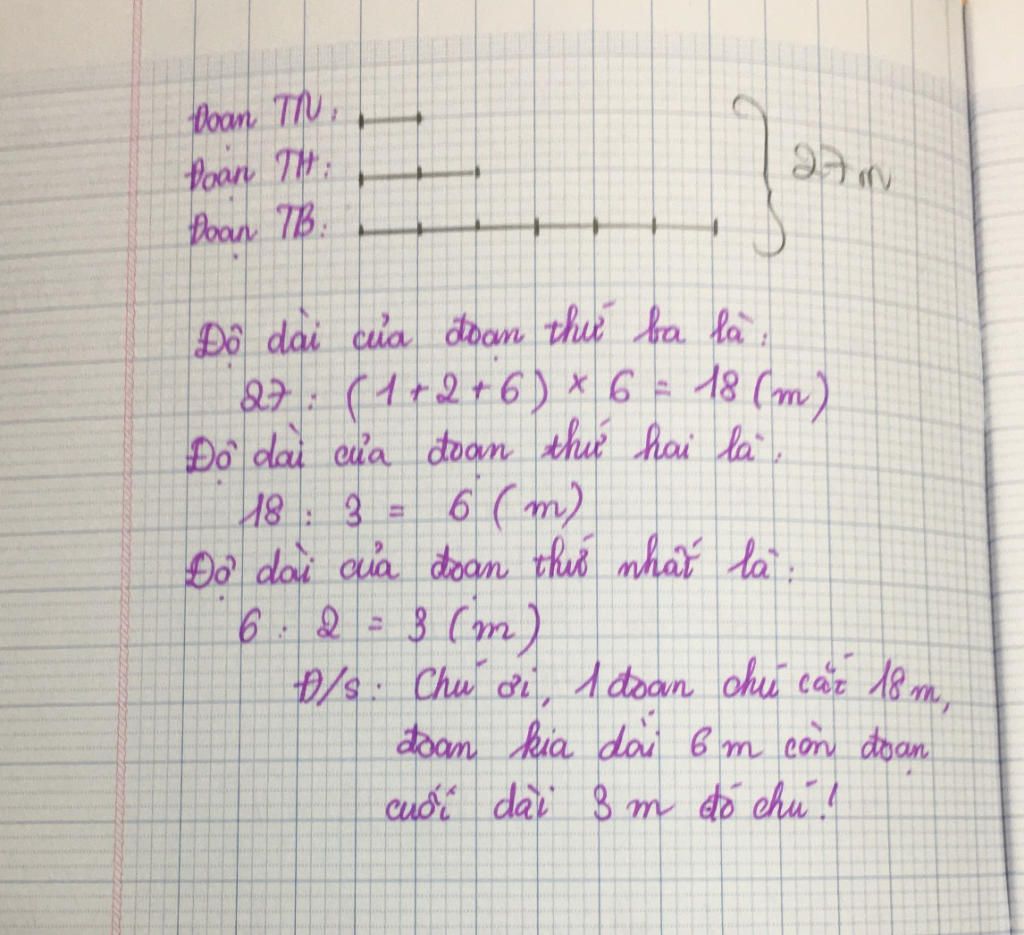 Đoạn TN:
Đoạn TH:
Đoạn TB:
27 m
Độ dài của đoạn thứ ba là:
27 : (1 + 2 + 6) × 6 = 18 (m)
Độ dài của đoạn thứ hai là:
18 : 3 = 6 (m)
Độ dài của đoạn thứ nhất là:
6 : 2 = 3 (m)
Đ/s: Chú ơi, 1 đoạn chú cắt 18 m,
đoạn kia dài 6 m còn đoạn
cuối dài 3 m đó chú!